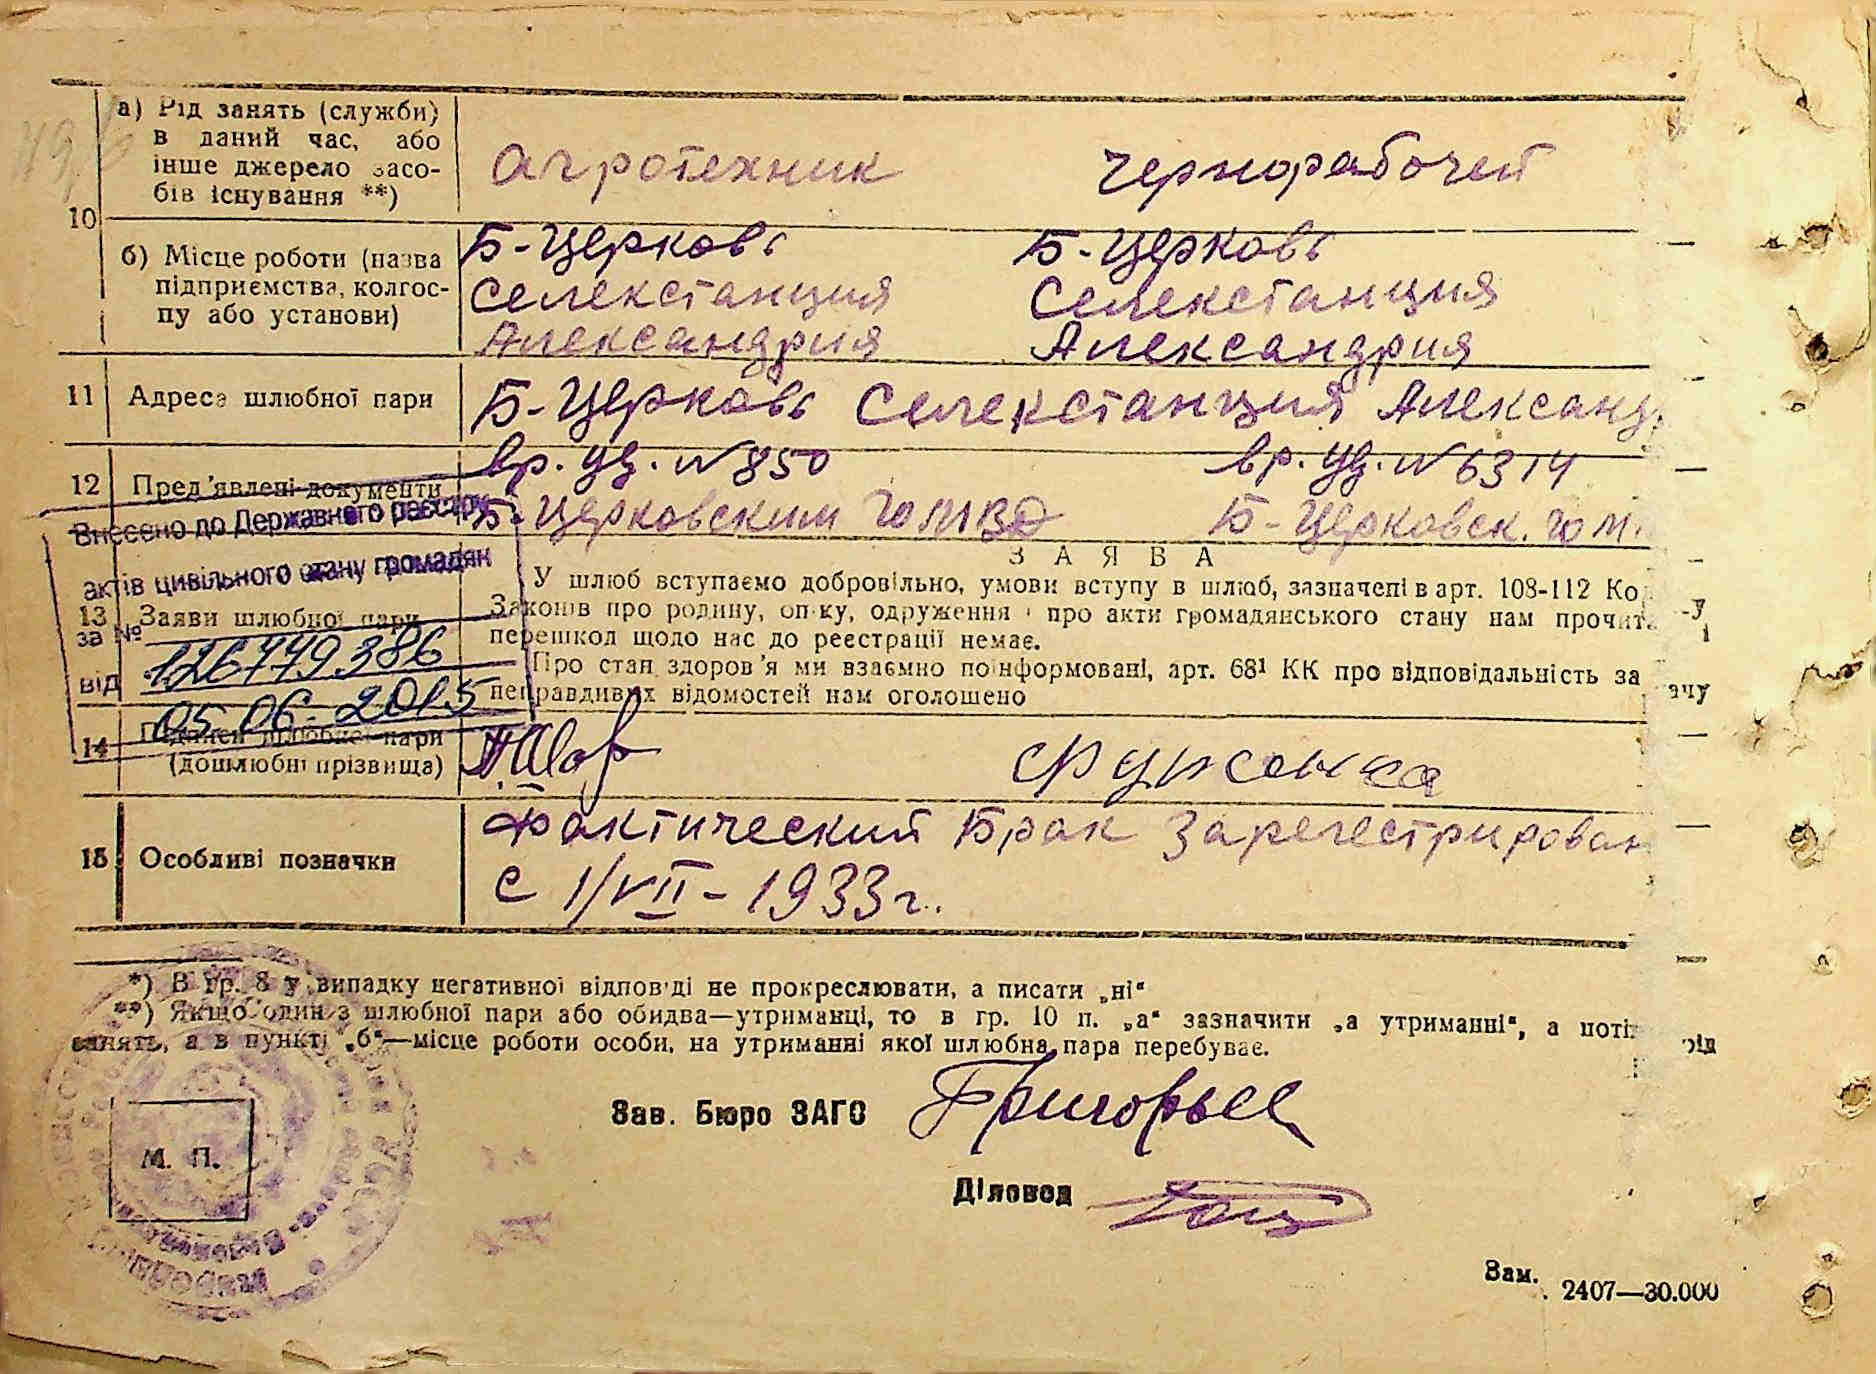 10
а) Рід занять (служби)
в даний час, або
інше джерело засо-
бів існування **)
агротехник чернорабочей
б) Місце роботи (назва
підприємства, колгос-
пу або установи)
Б-Церковь Б-Церковь
Селекстанция Селекстанция
Александрия Александрия
11 Адреса шлюбної пари
Б-Церковь Селекстанция Александ
12 Пред'явлені документи
вр. уд. №850 вр. уд. №6314
Б-Церковским ГОМВД Б-Церковск. ГОМ
Внесено до Державного реєстру
актів цивільного стану громадян
за № 126779386
від 05.06.2015
ЗАЯВА
13 Заяви шлюбної пари
У шлюб вступаємо добровільно, умови вступу в шлюб, зазначені в арт. 108-112 Ко
Законів про родину, опіку, одруження і про акти громадянського стану нам прочит
перешкод щодо нас до реєстрації немає.
Про стан здоров'я ми взаємно поінформовані, арт. 68¹ КК про відповідальність за ачу
неправдивих відомостей нам оголошено
14 Підписи шлюбної пари
(дошлюбні прізвища)
15 Особливі позначки
Фактический Брак Зарегестрирован
с 1/VII-1933г.
*) В гр. 8 у випадку негативної відповіді не прокреслювати, а писати „ні“
**) Якщо один з шлюбної пари або обидва—утриманці, то в гр. 10 п. „а“ зазначити „а утриманні“, а поті рід
занять, а в пункті „б“—місце роботи особи, на утриманні якої шлюбна пара перебуває.
Зав. Бюро ЗАГС Григорьев
М. П.
Діловод
Зам. 2407—30.000